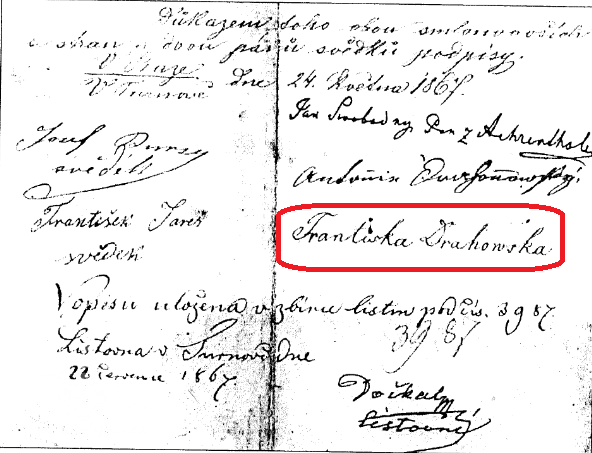 Důkazem toho obou smluvnících
stran a dvou pánů svědků podpisy.
V Praze
V Turnově dne 24. Května 1867.
Jan Svobodný Pan z Aehrenthalu
Josef
svědek
Antonín
František Jareš
svědek
Frantiska Drahowska
V opisu uložena v zbírce listin pod čís. 3987.
3987
Listovna v Turnově dne
22 července 1867.
Dočkal
listovní